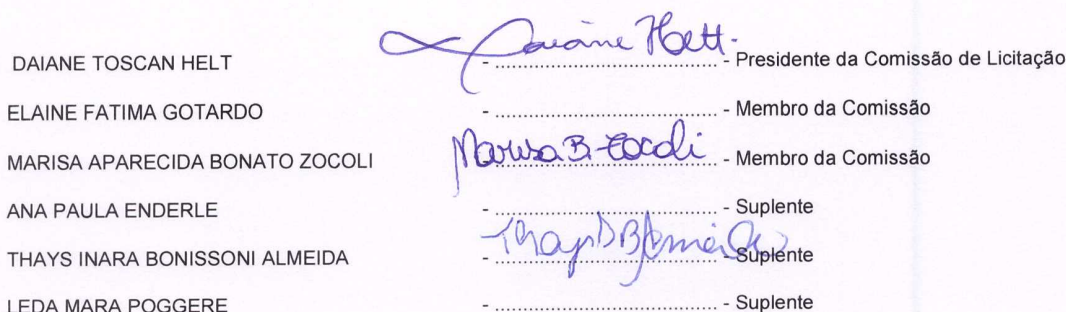 DAIANE TOSCAN HELT - Daiane Helt. - Presidente da Comissão de Licitação
ELAINE FATIMA GOTARDO - ........................................ - Membro da Comissão
MARISA APARECIDA BONATO ZOCOLI Marisa B. Zocoli - Membro da Comissão
ANA PAULA ENDERLE - ........................................ - Suplente
THAYS INARA BONISSONI ALMEIDA - Thays B Almeida - Suplente
LEDA MARA POGGERE - ........................................ - Suplente